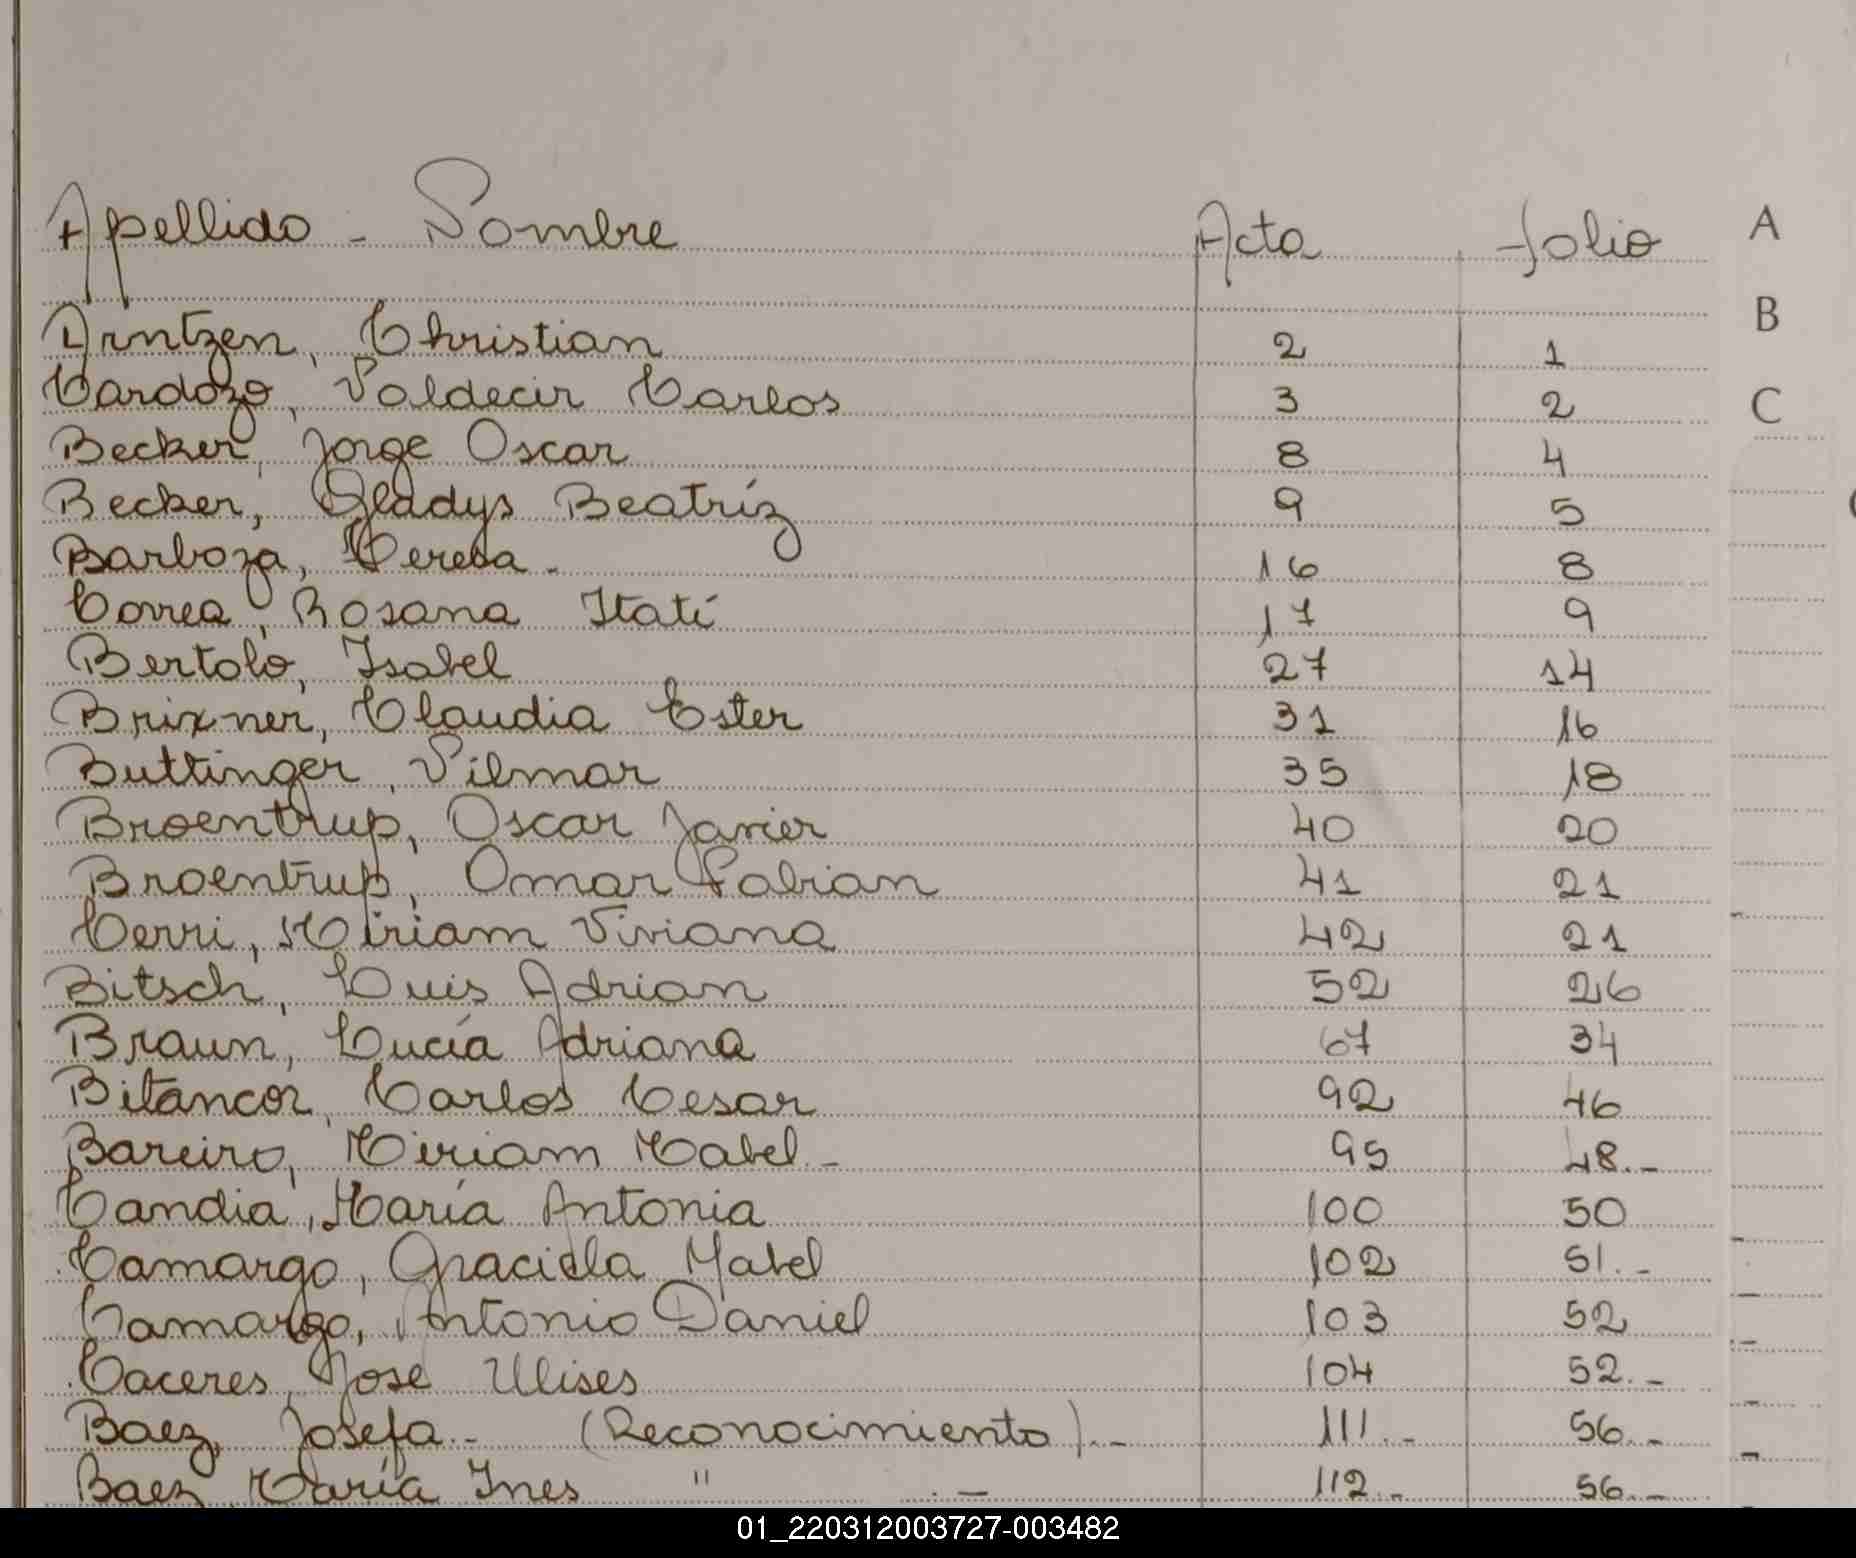 Apellido - Nombre Acta folio A
B
Arntzen, Christian 2 1
Cardozo, Valdecir Carlos 3 2 C
Becker, Jorge Oscar 8 4
Becker, Gladys Beatríz 9 5
Barboza, Teresa - 16 8
Correa, Rosana Itatí 17 9
Bertolo, Isabel 27 14
Brixner, Claudia Ester 31 16
Buttinger, Vilmar 35 18
Broentrup, Oscar Javier 40 20
Broentrup, Omar Fabian 41 21
Cerri, Miriam Viviana 42 21
Bitsch, Luis Adrian 52 26
Braun, Lucía Adriana 67 34
Bitancor, Carlos Cesar 92 46
Bareiro, Miriam Mabel.- 95 48.-
Candia, María Antonia 100 50
Camargo, Graciela Mabel 102 51.-
Camargo, Antonio Daniel 103 52
Caceres, José Ulises 104 52.-
Baez, Josefa.- (Reconocimiento).- 111.- 56.-
Baez, María Ines " .- 112.- 56.-
01_220312003727-003482